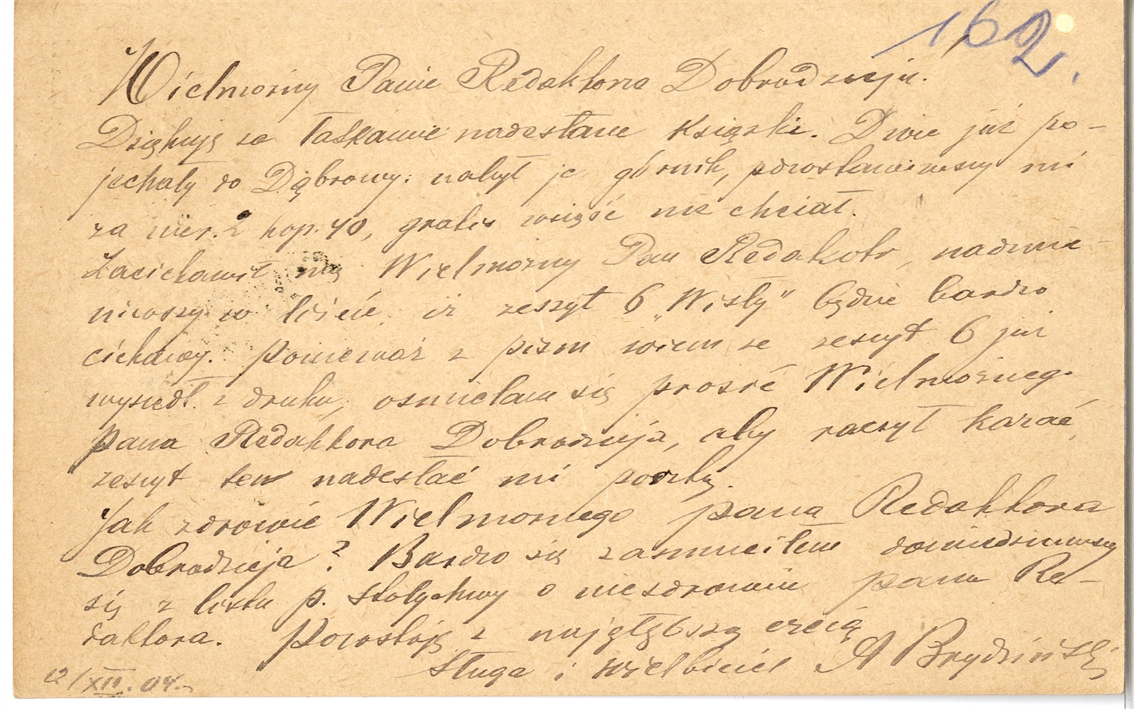 162.
Wielmożny Panie Redaktorze Dobrodzieju.
Dziękuję za łaskawie nadesłane książki. Dwie już po-
jechały do Dąbrowy: nabył je górnik, pozostawiwszy mi
za nie r. 2 kop. 40, gratis wziąść nie chciał.
Zaciekawił mię Wielmożny Pan Redaktor, nadmie-
niwszy w liście, iż zeszyt 6 „Wisły" będzie bardzo
ciekawy. Ponieważ z pism wiem że zeszyt 6 już
wyszedł z druku, ośmielam się prosić Wielmożnego
Pana Redaktora Dobrodzieja, aby raczył kazać,
zeszyt ten nadesłać mi pocztą.
Jak zdrowie Wielmożnego pana Redaktora
Dobrodzieja? Bardzo się zasmuciłem dowiedziawszy
się z listu p. Stołyhwy o niezdrowiu pana Re-
daktora. Pozostaję z najgłębszą czcią
sługa i wielbiciel A Brydziński
12/XII.04.